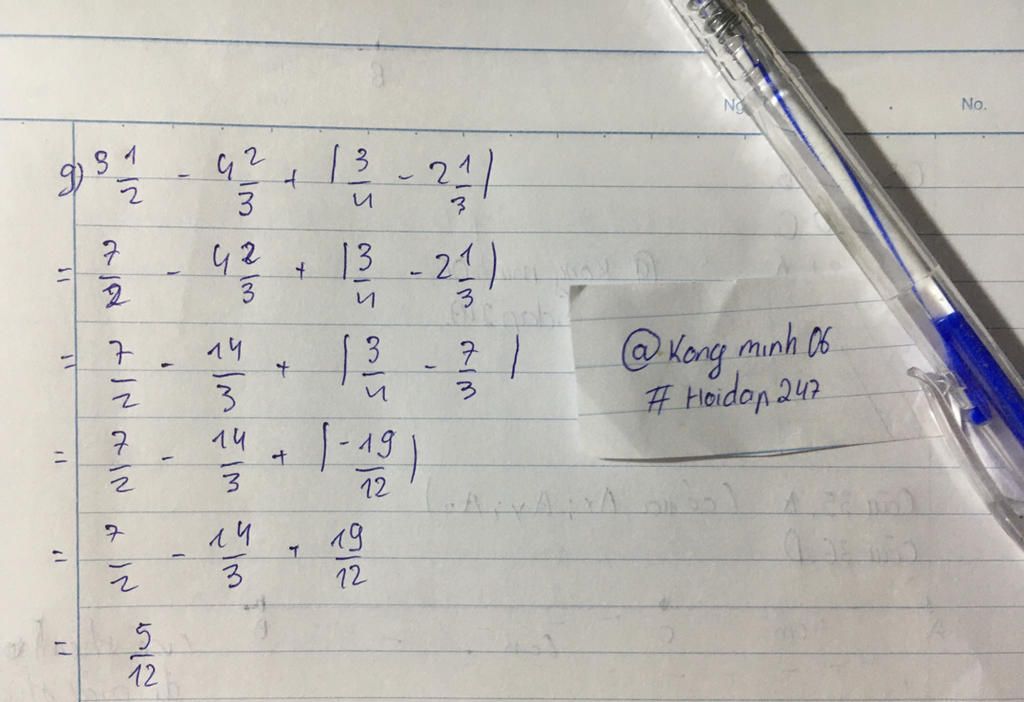 Ng
No.
g) 3 1/2 - 4 2/3 + |3/4 - 2 1/3|
= 7/2 - 4 2/3 + |3/4 - 2 1/3|
= 7/2 - 14/3 + |3/4 - 7/3|
= 7/2 - 14/3 + |-19/12|
= 7/2 - 14/3 + 19/12
= 5/12
@ Kong minh 06
# Hoidap 247